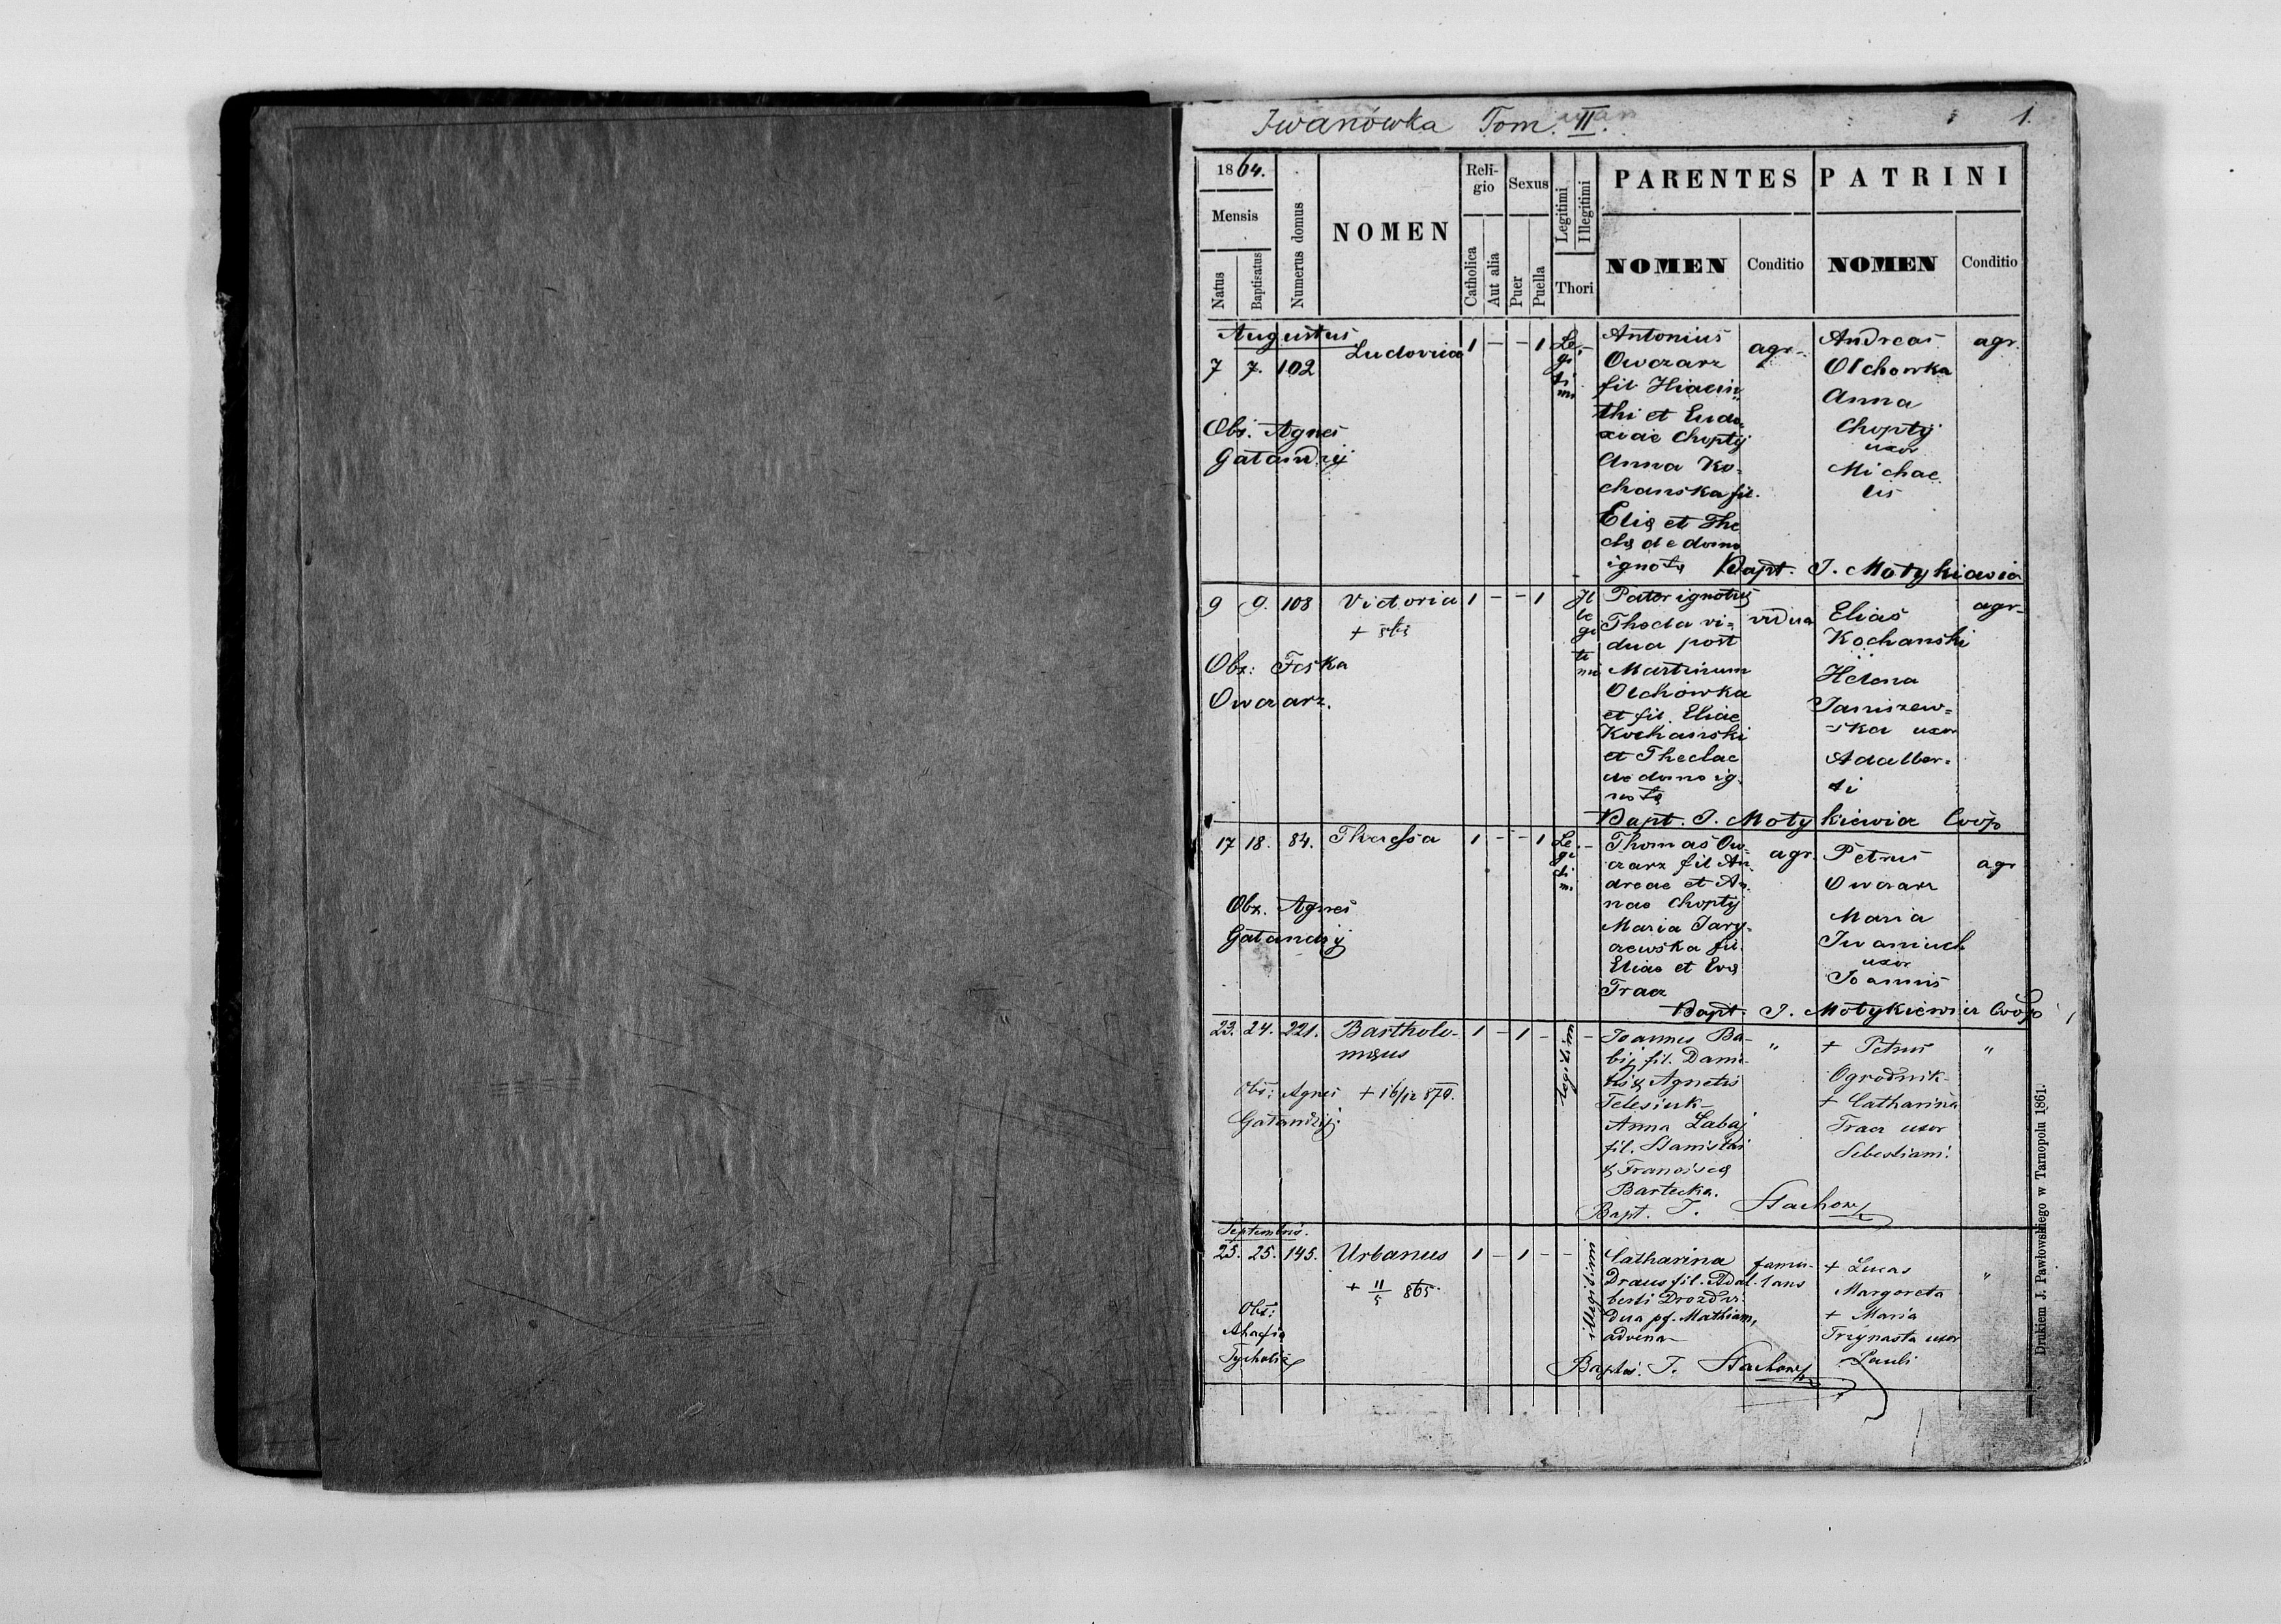 Iwanówka Tom. II.
1.
1864.
Mensis
Natus
Baptisatus
Numerus domus
NOMEN
Religio
Catholica
Aut alia
Sexus
Puer
Puella
Legitimi
Illegitimi
Thori
PARENTES
NOMEN
Conditio
PATRINI
NOMEN
Conditio
Augustus
7 7. 102
Ludovica
1 - - 1
Le-
gi
ti
mi
Obs. Agnes
Gatandzij
Antonius
Owczarz
fil Hiacin
thi et Eudo
xiae Choptij
Anna Ko-
chanska fil.
Elię et The
clę de domo
ignotę
agr.
Andreas
Olchowka
Anna
Choptij
uxor
Michae
lis
agr.
Bapt. J. Motykiewicz
9 9. 108
Victoria
1 - - 1
Il
le
gi
ti
mi
Obs: Feska
Owczarz.
Pater ignotus
Thecla vi-
dua post
Martinum
Olchowka
et fil. Eliae
Kochanski
et Theclae
de domo ig-
notę
vidua
Elias
Kochanski
Helena
Janiszew=
ska uxor
Adalber=
ti
agr-
Bapt. J. Motykiewicz Coop
17 18. 84.
Theressa
1 - - 1
Le-
gi
ti
mi
Obs. Agnes
Gatandzij
Thomas Ow-
czarz fil An
dreae et An
nae Choptij
Maria Jary-
czewska fil.
Eliae et Evę
Tracz
agr.
Petrus
Owczarz
Maria
Iwaniuch
uxor
Joannis
agr
Bapt. J. Motykiewicz Coop
23. 24. 221.
Bartholo-
męus
+ 16/12 870.
1 - 1 -
legitimi
Obs: Agnes
Gatandzij.
Joannes Ba-
bij fil. Dani-
lis & Agnetis
Telesiuk
Anna Labaj
fil. Stanislai
& Franciscę
Bartecka.
"
+ Petrus
Ogrodnik
+ Catharina
Tracz uxor
Sebestiani.
"
Bapt. J. Stachow
Septembris.
25. 25. 145.
Urbanus
+ 11/5 865.
1 - 1 - -
illegitimi
Obs:
Ahafia
Catharina
Draus fil. Adal-
berti Drozd vi-
dua p. Mathiam,
advena
famu-
lans
+ Lucas
Margoreta
+ Maria
Trzynasta uxor
Pauli
"
J. Stachow
Drukiem J. Pawłowskiego w Tarnopolu 1861.